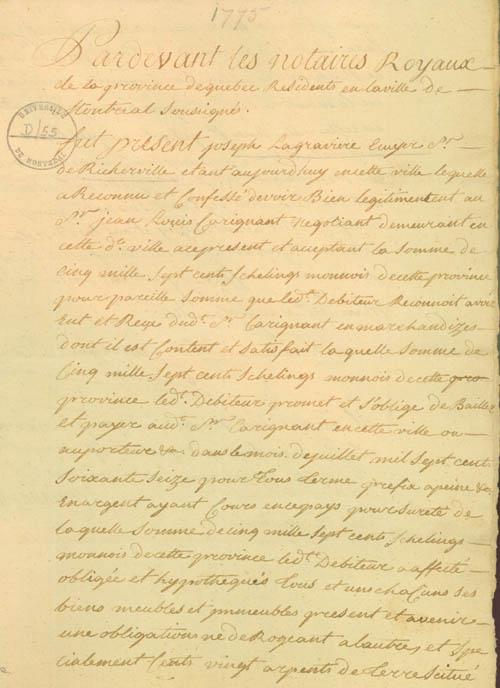 1775
Pardevant les notaires Royaux
de la province dequebec Residents en laville de
Montreal Soussignés.
UNIVERSITÉ
D/55
DE MONTREAL
fut present Joseph Lagraviere Ecuyer Sr.
de Richerville Etant aujourdhuy encette ville lequelle
a Reconnu et Confessé devoir Bien legitiment au
Sr. jean Louis Carignant Negotiant demeurant en
cette de. ville acepresent et acceptant la Somme de
Cinq mille Sept cents Schelings monnois decette province
pour pareille Somme que ledt. Debiteur Reconnoit avoir
Eut et Reçu dudt. Sr. Carignant en marchandizes
dont il est Content et Satisfait la quelle Somme de
Cinq mille Sept cents Schelings monnois decette pro
province ledt. Debiteur promet et S'oblige de Bailler
et payer audt. Sr. Carignant encette ville ou
auporteur &a. dans le mois dejuillet mil Sept cent
Soixante Seize pour Tous Terme prefix apeine &a
En argent ayant Cours encepays pour Sureté de
la quelle Somme decinq mille Sept cents Schelings
monnois decette province ledt. Debiteur a affecté
obligée et hypothequés Tous et uns chacuns Ses
biens meubles et jmmeubles present et avenirs
une obligations ne de Rogeant alautres et Spe
cialement Cents vingt arpents de Terre Situé